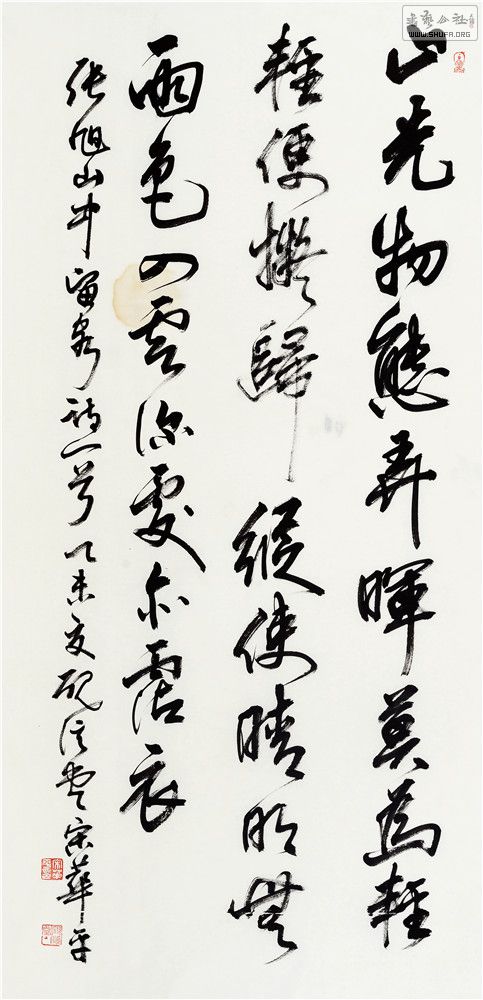 書藝公社
WWW.SHUFA.ORG
山光物態弄暉莫為輕
輕便擬歸縱使晴明無
雨色入雲深處亦霑衣
張旭山中留客詩一首乙未夏宋華平